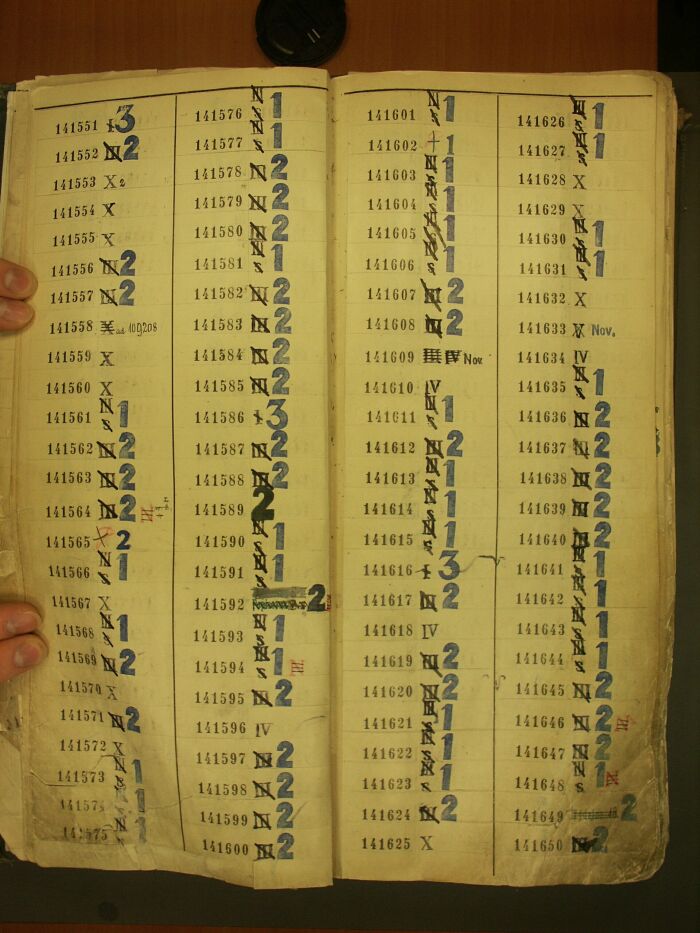 141551 3
141552 2
141553 X 2
141554 X
141555 X
141556 2
141557 2
141558 109208
141559 X
141560 X
141561 1
141562 2
141563 2
141564 2 III.
141565 2
141566 1
141567 X
141568 1
141569 2
141570 X
141571 2
141572 X
141573 1
14157 1
141575 1
141576 1
141577 1
141578 2
141579 2
141580 2
141581 1
141582 2
141583 2
141584 2
141585 2
141586 + 3
141587 2
141588 2
141589 2
141590 1
141591 1
141592 2
141593 1
141594 1 III.
141595 2
141596 IV
141597 2
141598 2
141599 2
141600 2
141601 1
141602 + 1
141603 1
141604 1
141605 1
141606 1
141607 2
141608 2
141609 IV Nov.
141610 IV
141611 1
141612 2
141613 1
141614 1
141615 1
141616 + 3
141617 2
141618 IV
141619 2
141620 2
141621 1
141622 1
141623 1
141624 2
141625 X
141626 1
141627 1
141628 X
141629 X
141630 1
141631 1
141632 X
141633 X Nov.
141634 IV
141635 1
141636 2
141637 2
141638 2
141639 2
141640 2
141641 1
141642 1
141643 1
141644 1
141645 2
141646 2 III.
141647 2
141648 1 III.
141649 2
141650 2